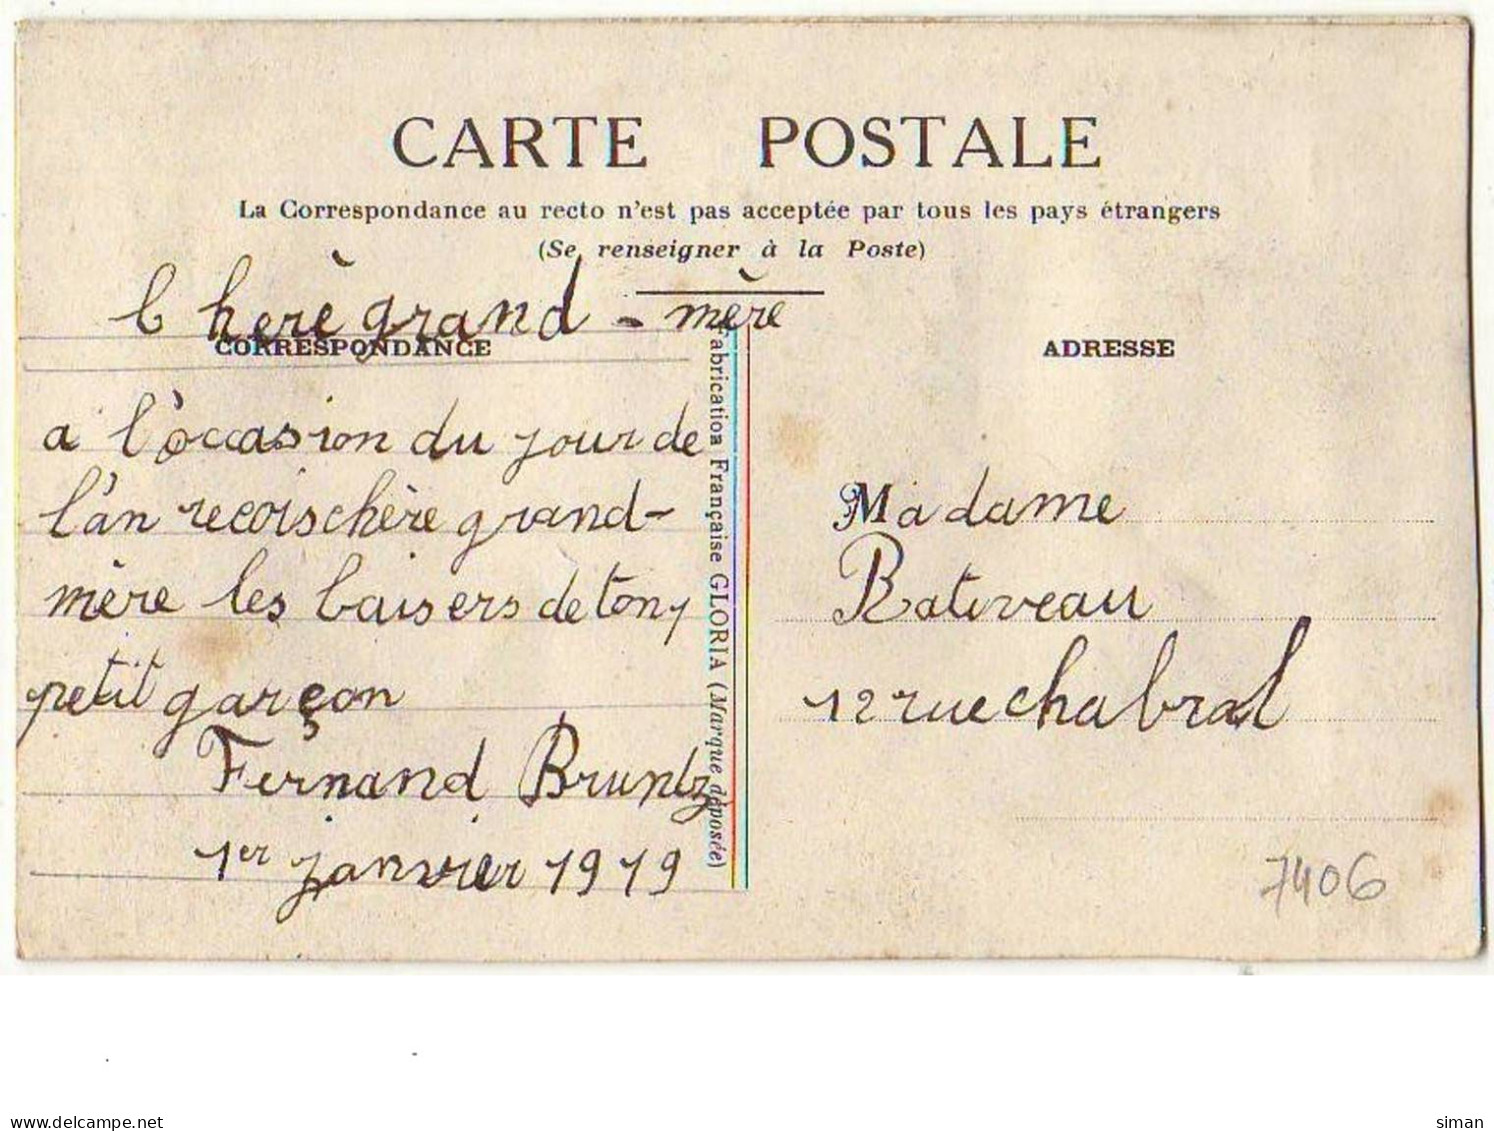 CARTE POSTALE
La Correspondance au recto n'est pas acceptée par tous les pays étrangers
(Se renseigner à la Poste)
Cherè grand-mère
CORRESPONDANCE
a l'òccasion du jour de
l'àn recois chère grand-
mère les baisers de ton
petit garçon
Fernand Bruntz
1er janvier 1919
Fabrication Française GLORIA (Marque déposée)
ADRESSE
Madame
Rativeau
12 rue Chabral
7406
delcampe.net
siman